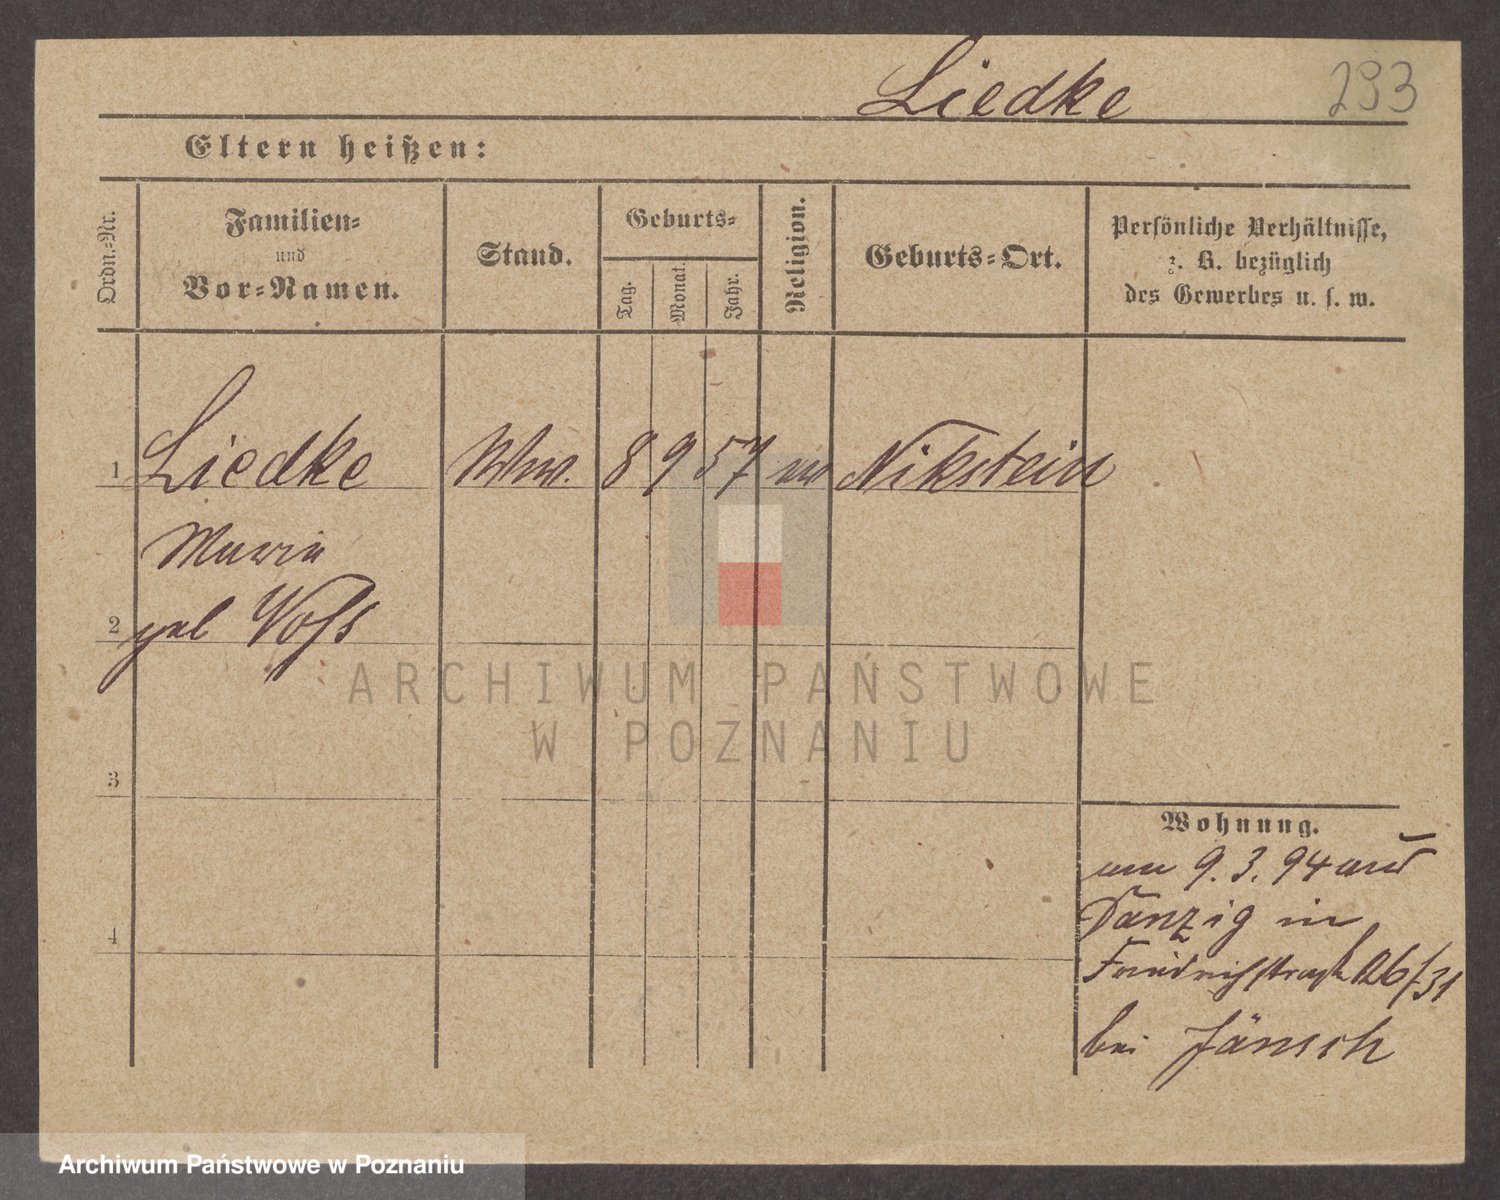 Liedke
293
Eltern heißen:
Ordn.-Nr.
Familien-
und
Vor-Namen.
Stand.
Geburts-
Tag.
Monat.
Jahr.
Religion.
Geburts-Ort.
Persönliche Verhältnisse,
z. B. bezüglich
des Gewerbes u. s. w.
1 Liedke Wwe. 8 9 57 ev Nikstein
Maria
2 geb Voss
3
4
Wohnung.
am 9. 3. 94 aus
Danzig in
Friedrichstraße 26/31
bei Jänsch
ARCHIWUM PAŃSTWOWE
W POZNANIU
Archiwum Państwowe w Poznaniu